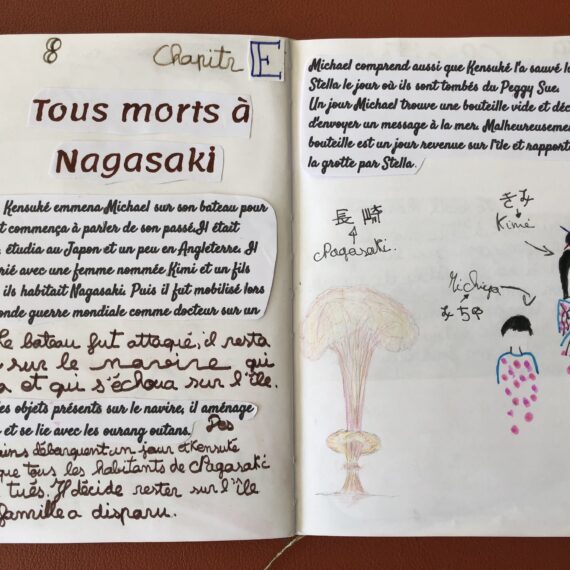 8
Chapitr E
Tous morts à
Nagasaki
Kensuké emmena Michael sur son bateau pour
t commença à parler de son passé.Il était
étudia au Japon et un peu en Angleterre. Il
rié avec une femme nommée Kimi et un fils
ils habitait Nagasaki. Puis il fut mobilisé lors
onde guerre mondiale comme docteur sur un
Le bateau fut attaqué, il resta
sur le navire qui
a et qui s'échoua sur l'île.
es objets présents sur le navire, il aménage
et se lie avec les ourang outans. Des
ains débarquent un jour et Kensuké
que tous les habitants de Nagasaki
tués. Il décide rester sur l'île
famille a disparu.
Michael comprend aussi que Kensuké l'a sauvé l
Stella le jour où ils sont tombés du Peggy Sue.
Un jour Michael trouve une bouteille vide et déc
d'envoyer un message à la mer. Malheureuseme
bouteille est un jour revenue sur l'île et rapport
la grotte par Stella.
長崎
Nagasaki.
きみ
Kimié
Michiya